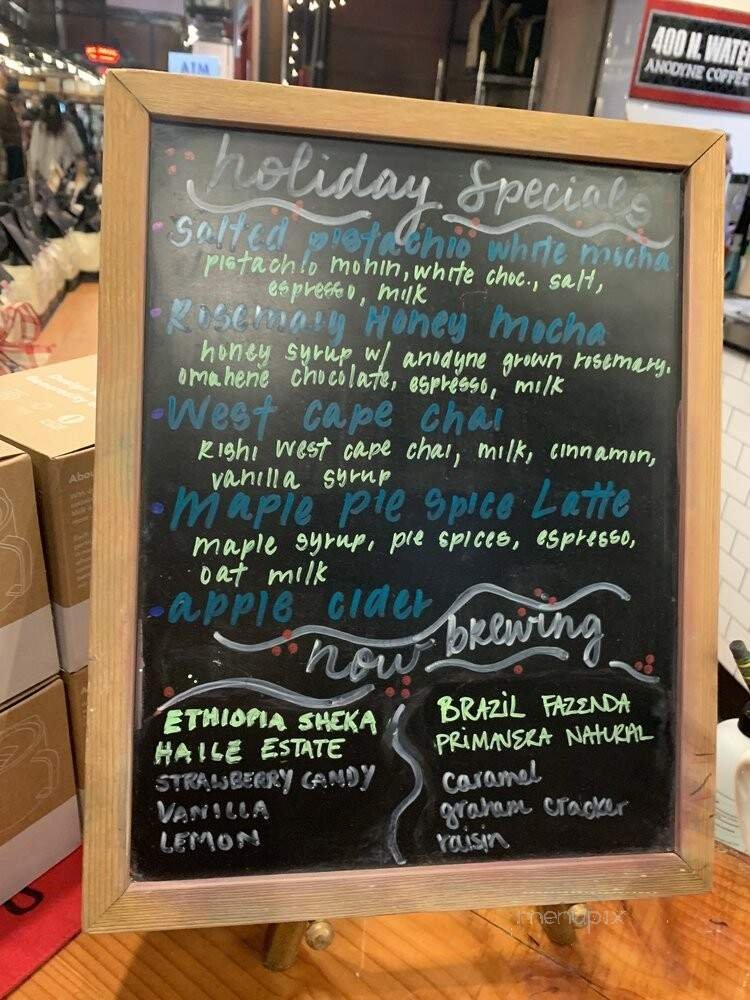 ATM
400 N. WATE
ANODYNE COFFE
holiday Specials
Salted pistachio white mocha
pistachio monin, white choc., salt,
espresso, milk
Rosemary Honey Mocha
honey syrup w/ anodyne grown rosemary.
omahene chocolate, espresso, milk
West cape chai
Rishi West cape chai, milk, cinnamon,
vanilla syrup
Maple pie spice Latte
maple syrup, pie spices, espresso,
oat milk
apple cider
now brewing
ETHIOPIA SHEKA
HAILE ESTATE
STRAWBERRY CANDY
VANILLA
LEMON
BRAZIL FAZENDA
PRIMAVERA NATURAL
caramel
graham cracker
raisin
menupix